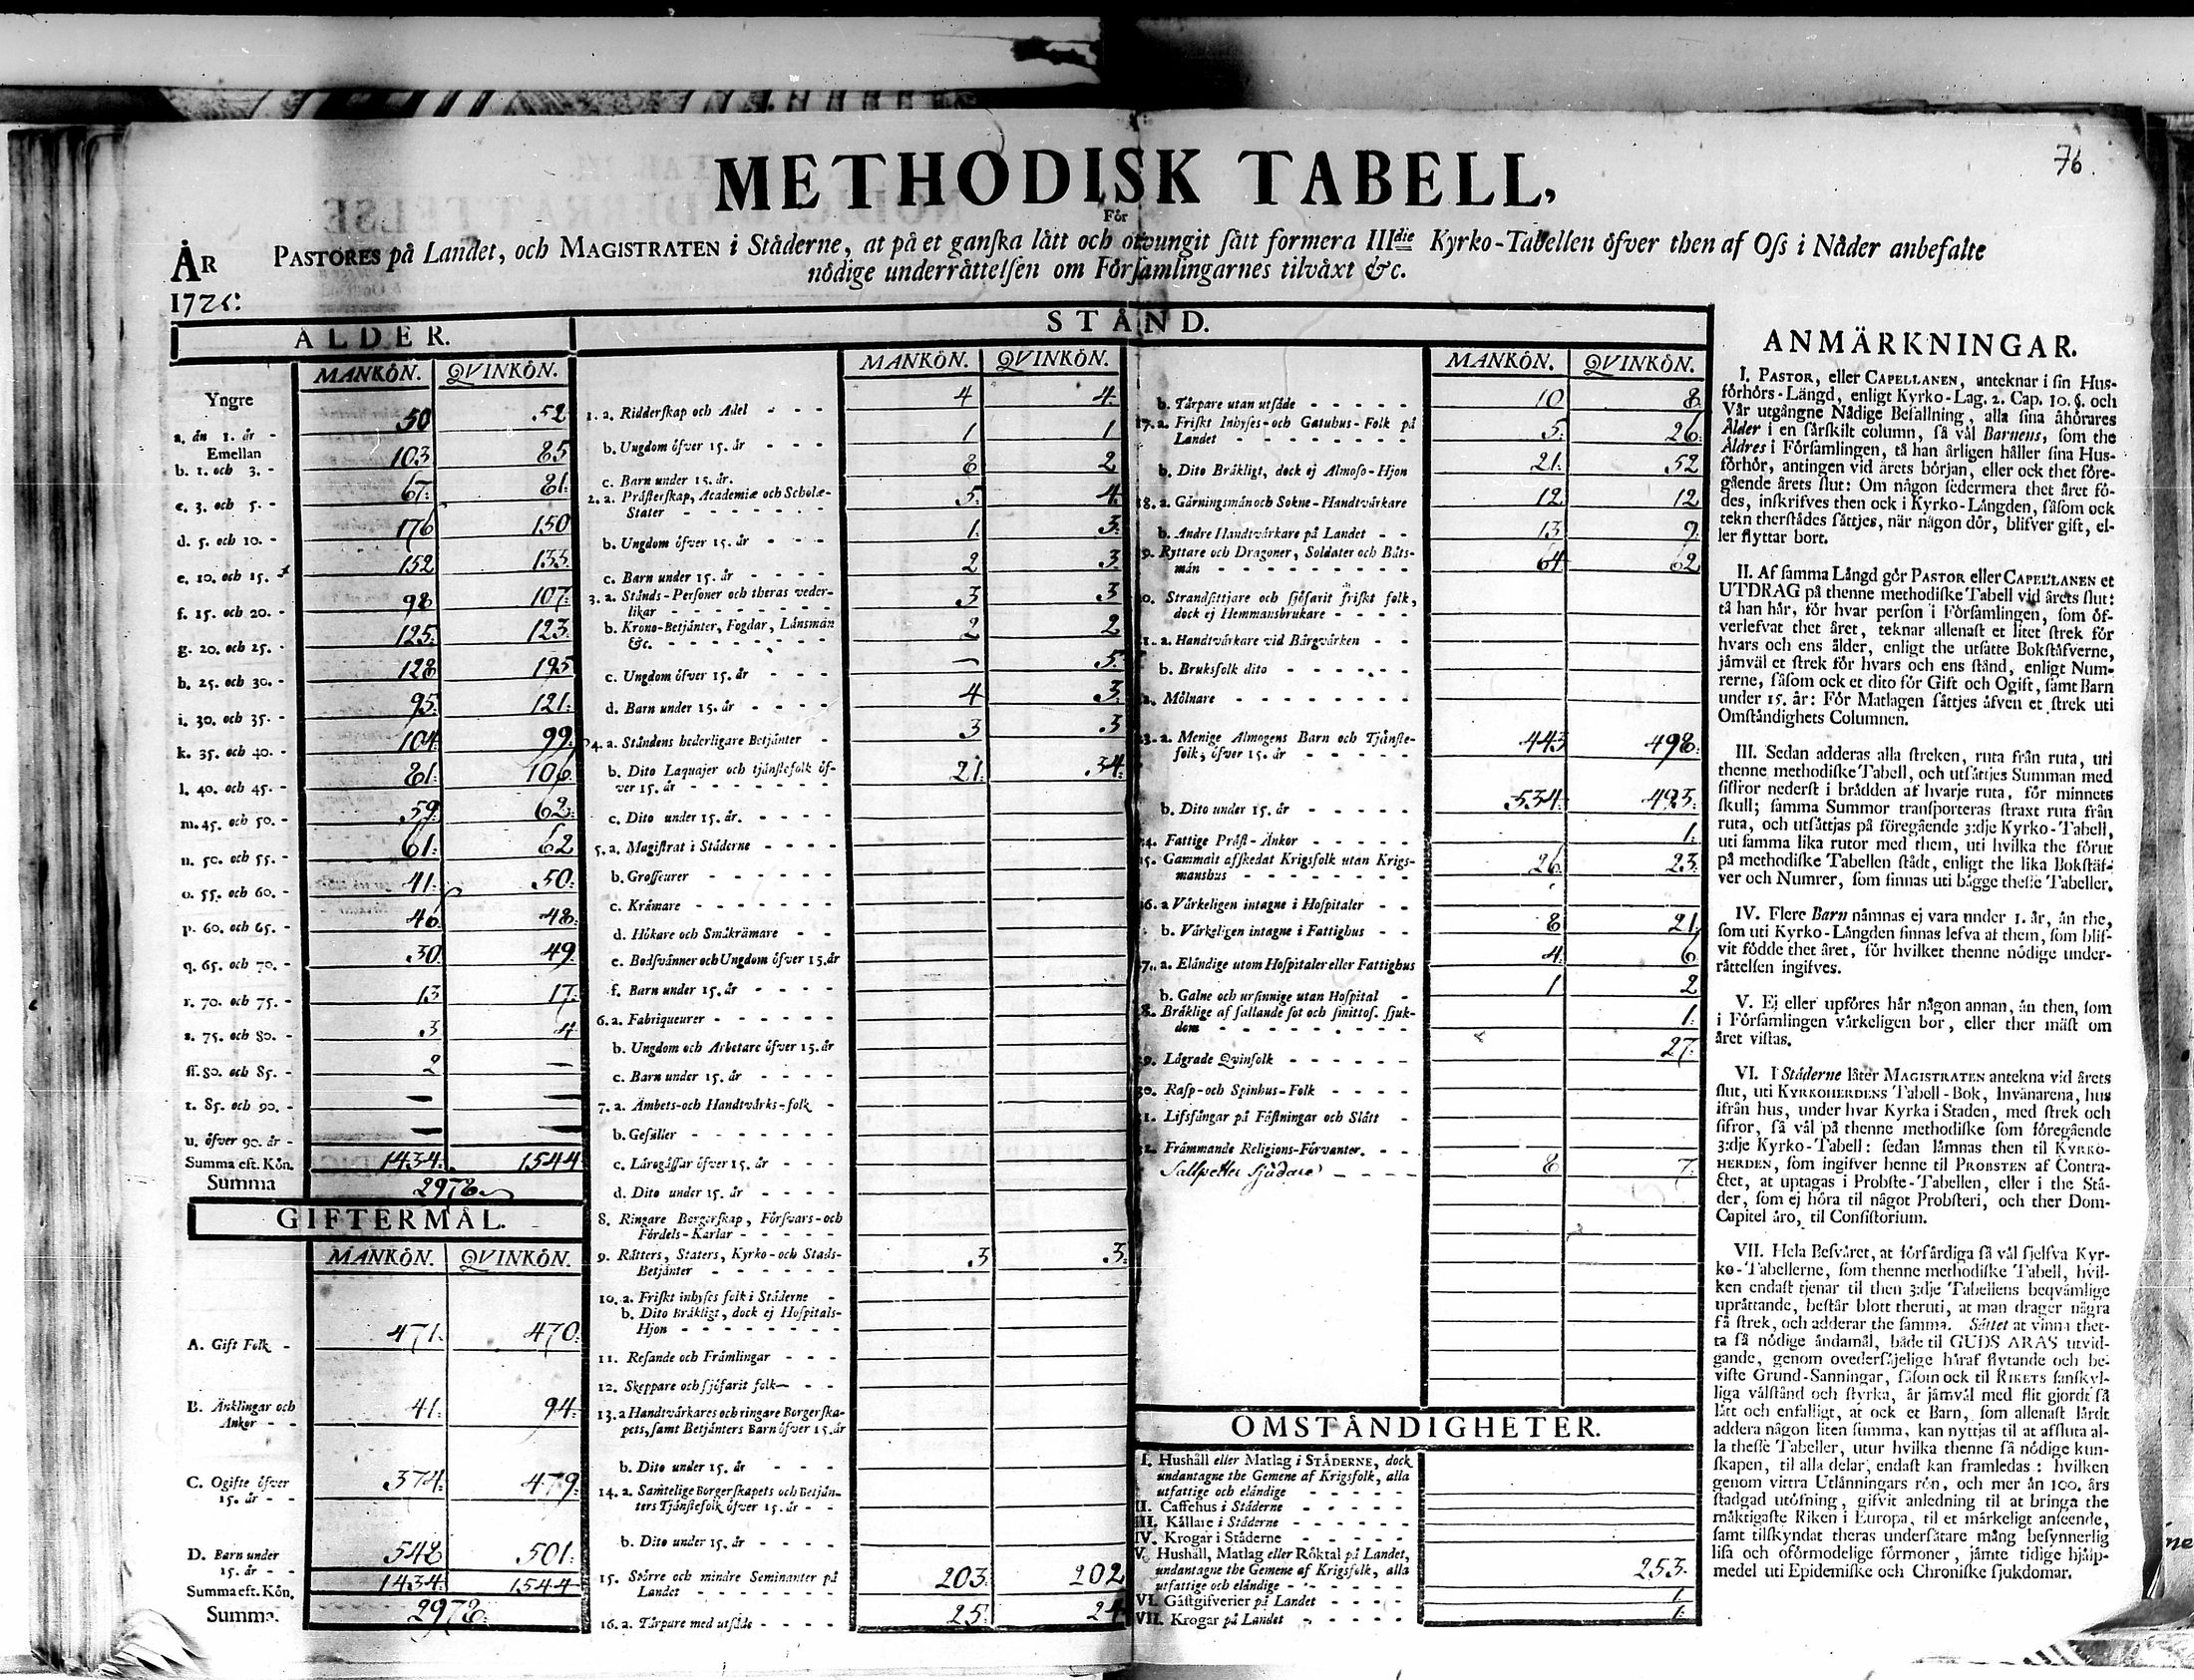 76.
METHODISK TABELL,
För
ÅR PASTORES på Landet, och MAGISTRATEN i Städerne, at på et ganſka lätt och otvungit ſätt formera IIIdie Kyrko-Tabellen öfver then af Oſs i Nåder anbefalte
nödige underrättelſen om Förſamlingarnes tilväxt &c.
ÅLDER.
MANKÖN. QVINKÖN.
Yngre
a. än 1. år - 50 52
Emellan
b. 1. och 3. - 103 85
c. 3. och 5. - 67. 81.
d. 5. och 10. - 176 150
e. 10. och 15. 152 133
f. 15. och 20. - 98 107.
g. 20. och 25. - 125. 123.
h. 25. och 30. - 128 195
i. 30. och 35. - 95. 121.
k. 35. och 40. - 104 99.
l. 40. och 45. - 81. 106
m. 45. och 50. - 59. 62.
n. 50. och 55. - 61. 62
o. 55. och 60. - 41. 50.
p. 60. och 65. - 46 48.
q. 65. och 70. - 30. 49.
r. 70. och 75. - 13 17.
s. 75. och 80. - 3 4
ſſ. 80. och 85. - 2 —
t. 85. och 90. - — —
u. öfver 90. år - — —
Summa eft. Kön. 1434. 1544
Summa 2978
GIFTERMÅL.
MANKÖN. QVINKÖN.
A. Gift Folk - 471. 470.
B. Änklingar och
Änkor - - 41. 94.
C. Ogifte öfver
15. år - - 374. 479.
D. Barn under
15. år - - 548 501.
Summa eft. Kön. 1434. 1544
Summa. 2978.
STÅND.
MANKÖN. QVINKÖN.
1. a. Ridderſkap och Adel - - - 4 4.
b. Ungdom öfver 15. år - - - 1 1
c. Barn under 15. år. 8 2
2. a. Präſterſkap, Academiæ och Scholæ-
Stater - - - - - - - 5. 4.
b. Ungdom öfver 15. år - - - 1. 3.
c. Barn under 15. år - - - - 2 3
3. a. Stånds-Perſoner och theras veder-
likar - - - - - - - 3 3
b. Krono-Betjänter, Fogdar, Länsmän
&c. - - - - - - - 2 2
c. Ungdom öfver 15. år - - - — 5.
d. Barn under 15. år - - - - 4 3.
4. a. Ståndens hederligare Betjänter - 3 3
b. Dito Laquajer och tjänſtefolk öf-
ver 15. år - - - - - - - 21. 34.
c. Dito under 15. år. - - - -
5. a. Magiſtrat i Städerne - - - -
b. Groſſeurer - - - - - -
c. Krämare - - - - - - -
d. Hökare och Småkrämare - -
e. Bodſvänner och Ungdom öfver 15. år
f. Barn under 15. år - - - -
6. a. Fabriqueurer - - - - - -
b. Ungdom och Arbetare öfver 15. år
c. Barn under 15. år - - - -
7. a. Ämbets-och Handtvärks-folk -
b. Geſäller - - - - - - -
c. Lärogåſſar öfver 15. år - - -
d. Dito under 15. år - - - -
8. Ringare Borgerſkap, Förſvars-och
Fördels-Karlar - - - - -
9. Rätters, Staters, Kyrko-och Stads-
Betjänter - - - - - - 3 3.
10. a. Friſkt inhyſes folk i Städerne -
b. Dito Bräkligt, dock ej Hoſpitals-
Hjon - - - - - - - -
11. Reſande och Främlingar - - -
12. Skeppare och ſjöfarit folk - -
13. a Handtvärkares och ringare Borgerſka-
pets, ſamt Betjänters Barn öfver 15. år
b. Dito under 15. år - - -
14. a. Samtelige Borgerſkapets och Betjän-
ters Tjänſtefolk öfver 15. år - -
b. Dito under 15. år - - - -
15. Större och mindre Hemmanter på
Landet - - - - - - - 203 202
16. a. Tärpare med utſäde - - - - 25. 24
MANKÖN. QVINKÖN.
b. Tärpare utan utſäde - - - - - 10 8.
17. a. Friſkt Inhyſes-och Gatuhus-Folk på
Landet - - - - - - - - 5. 26.
b. Dito Bräkligt, dock ej Almoſo-Hjon 21. 52
18. a. Gärningsmän och Sokne-Handtvärkare 12 12
b. Andre Handtvärkare på Landet - - 13 9.
9. Ryttare och Dragoner, Soldater och Båts-
män - - - - - - - - - 64 62
0. Strandſittjare och ſjöfarit friſkt folk,
dock ej Hemmansbrukare - - - -
1. a. Handtvärkare vid Bärgvärken - -
b. Bruksfolk dito - - - - - -
2. Mölnare - - - - - - - -
3. a. Menige Almogens Barn och Tjänſte-
folk, öfver 15. år - - - - - 443 498.
b. Dito under 15. år - - - - - 534. 493.
24. Fattige Präſt-Änkor - - - - - 1.
25. Gammalt afſkedat Krigsfolk utan Krigs-
manshus - - - - - - - - 26 23.
26. a Värkeligen intagne i Hoſpitaler - -
b. Värkeligen intagne i Fattighus - - 8 21.
27. a. Eländige utom Hoſpitaler eller Fattighus 4. 6
b. Galne och urſinnige utan Hoſpital - 1 2
8. Bräklige af fallande ſot och ſmittoſ. ſjuk-
dom - - - - - - - - - 1.
29. Lägrade Qvinfolk - - - - - - 27.
30. Raſp-och Spinhus-Folk - - - -
31. Lifsfångar på Fäſtningar och Slått -
32. Främmande Religions-Förvanter. - -
Sallpetter Sjudare - - - - 8 7.
OMSTÄNDIGHETER.
I. Hushåll eller Matlag i STÄDERNE, dock
undantagne the Gemene af Krigsfolk, alla
utfattige och eländige - - - - -
II. Caffehus i Städerne - - - - -
III. Källare i Städerne - - - - -
IV. Krogar i Städerne - - - - -
V. Hushåll, Matlag eller Röktal på Landet,
undantagne the Gemene af Krigsfolk, alla
utfattige och eländige - - - - - 253.
VI. Gäſtgifverier på Landet - - - - 1.
VII. Krogar på Landet - - - - - 1.
ANMÄRKNINGAR.
I. PASTOR, eller CAPELLANEN, anteknar i ſin Hus-
förhörs-Längd, enligt Kyrko-Lag. 2. Cap. 10. §. och
Vår utgångne Nådige Befallning, alla ſina åhörares
Ålder i en ſärſkilt column, ſå väl Barnens, ſom the
Äldres i Förſamlingen, tå han årligen håller ſina Hus-
förhör, antingen vid årets början, eller ock thet före-
gående årets ſlut: Om någon ſedermera thet året fö-
des, inſkrifves then ock i Kyrko-Längden, ſåſom ock
tekn therſtädes ſättjes, när någon dör, blifver gift, el-
ler flyttar bort.
II. Af ſamma Längd gör PASTOR eller CAPELLANEN et
UTDRAG på thenne methodiſke Tabell vid årets ſlut:
tå han här, för hvar perſon i Förſamlingen, ſom öf-
verlefvat thet året, teknar allenaſt et litet ſtrek för
hvars och ens ålder, enligt the utſatte Bokſtäfverne,
jämväl et ſtrek för hvars och ens ſtånd, enligt Num-
rerne, ſåſom ock et dito för Gift och Ogift, ſamt Barn
under 15. år: För Matlagen ſättjes äfven et ſtrek uti
Omſtändighets Columnen.
III. Sedan adderas alla ſtreken, ruta från ruta, uti
thenne methodiſke Tabell, och utſättjes Summan med
ſiffror nederſt i brädden af hvarje ruta, för minnets
ſkull; ſamma Summor transporteras ſtraxt ruta från
ruta, och utſättjas på föregående 3:dje Kyrko-Tabell,
uti ſamma lika rutor med them, uti hvilka the förut
på methodiſke Tabellen ſtådt, enligt the lika Bokſtäf-
ver och Numrer, ſom finnas uti bägge theſſe Tabeller.
IV. Flere Barn nämnas ej vara under 1. år, än the,
ſom uti Kyrko-Längden finnas lefva af them, ſom blif-
vit födde thet året, för hvilket thenne nödige under-
rättelſen ingifves.
V. Ej eller upföres här någon annan, än then, ſom
i Förſamlingen värkeligen bor, eller ther mäſt om
året viſtas.
VI. I Städerne låter MAGISTRATEN antekna vid årets
ſlut, uti KYRKOHERDENS Tabell-Bok, Invånarena, hus
ifrån hus, under hvar Kyrka i Staden, med ſtrek och
ſifror, ſå väl på thenne methodiſke ſom föregående
3:dje Kyrko-Tabell: ſedan lämnas then til KYRKO-
HERDEN, ſom ingifver henne til PROBSTEN af Contra-
ctet, at uptagas i Probſte-Tabellen, eller i the Stä-
der, ſom ej höra til något Probſteri, och ther Dom-
Capitel äro, til Conſiſtorium.
VII. Hela Beſväret, at förfärdiga ſå väl ſjelfva Kyr-
ko-Tabellerne, ſom thenne methodiſke Tabell, hvil-
ken endaſt tjenar til then 3:dje Tabellens beqvämlige
uprättande, beſtår blott theruti, at man drager några
få ſtrek, och adderar the ſamma. Sättet at vinna thet-
ta ſå nödige ändamål, både til GUDS ÄRAS utvid-
gande, genom ovederſäjelige häraf flytande och be-
viſte Grund-Sanningar, ſåſom ock til RIKETS ſanſkyl-
liga välſtånd och ſtyrka, är jämväl med flit gjordt ſå
lätt och enfalligt, at ock et Barn, ſom allenaſt lärdt
addera någon liten ſumma, kan nyttjas til at afſluta al-
la theſſe Tabeller, utur hvilka thenne ſå nödige kun-
ſkapen, til alla delar, endaſt kan framledas: hvilken
genom vittra Utlänningars rön, och mer än 100. års
ſtadgad utöfning, gifvit anledning til at bringa the
mäktigaſte Riken i Europa, til et märkeligt anſeende,
ſamt tilſkyndat theras underſåtare mång beſynnerlig
liſa och oförmodelige förmoner, jämte tidige hjälp-
medel uti Epidemiſke och Chroniſke ſjukdomar.